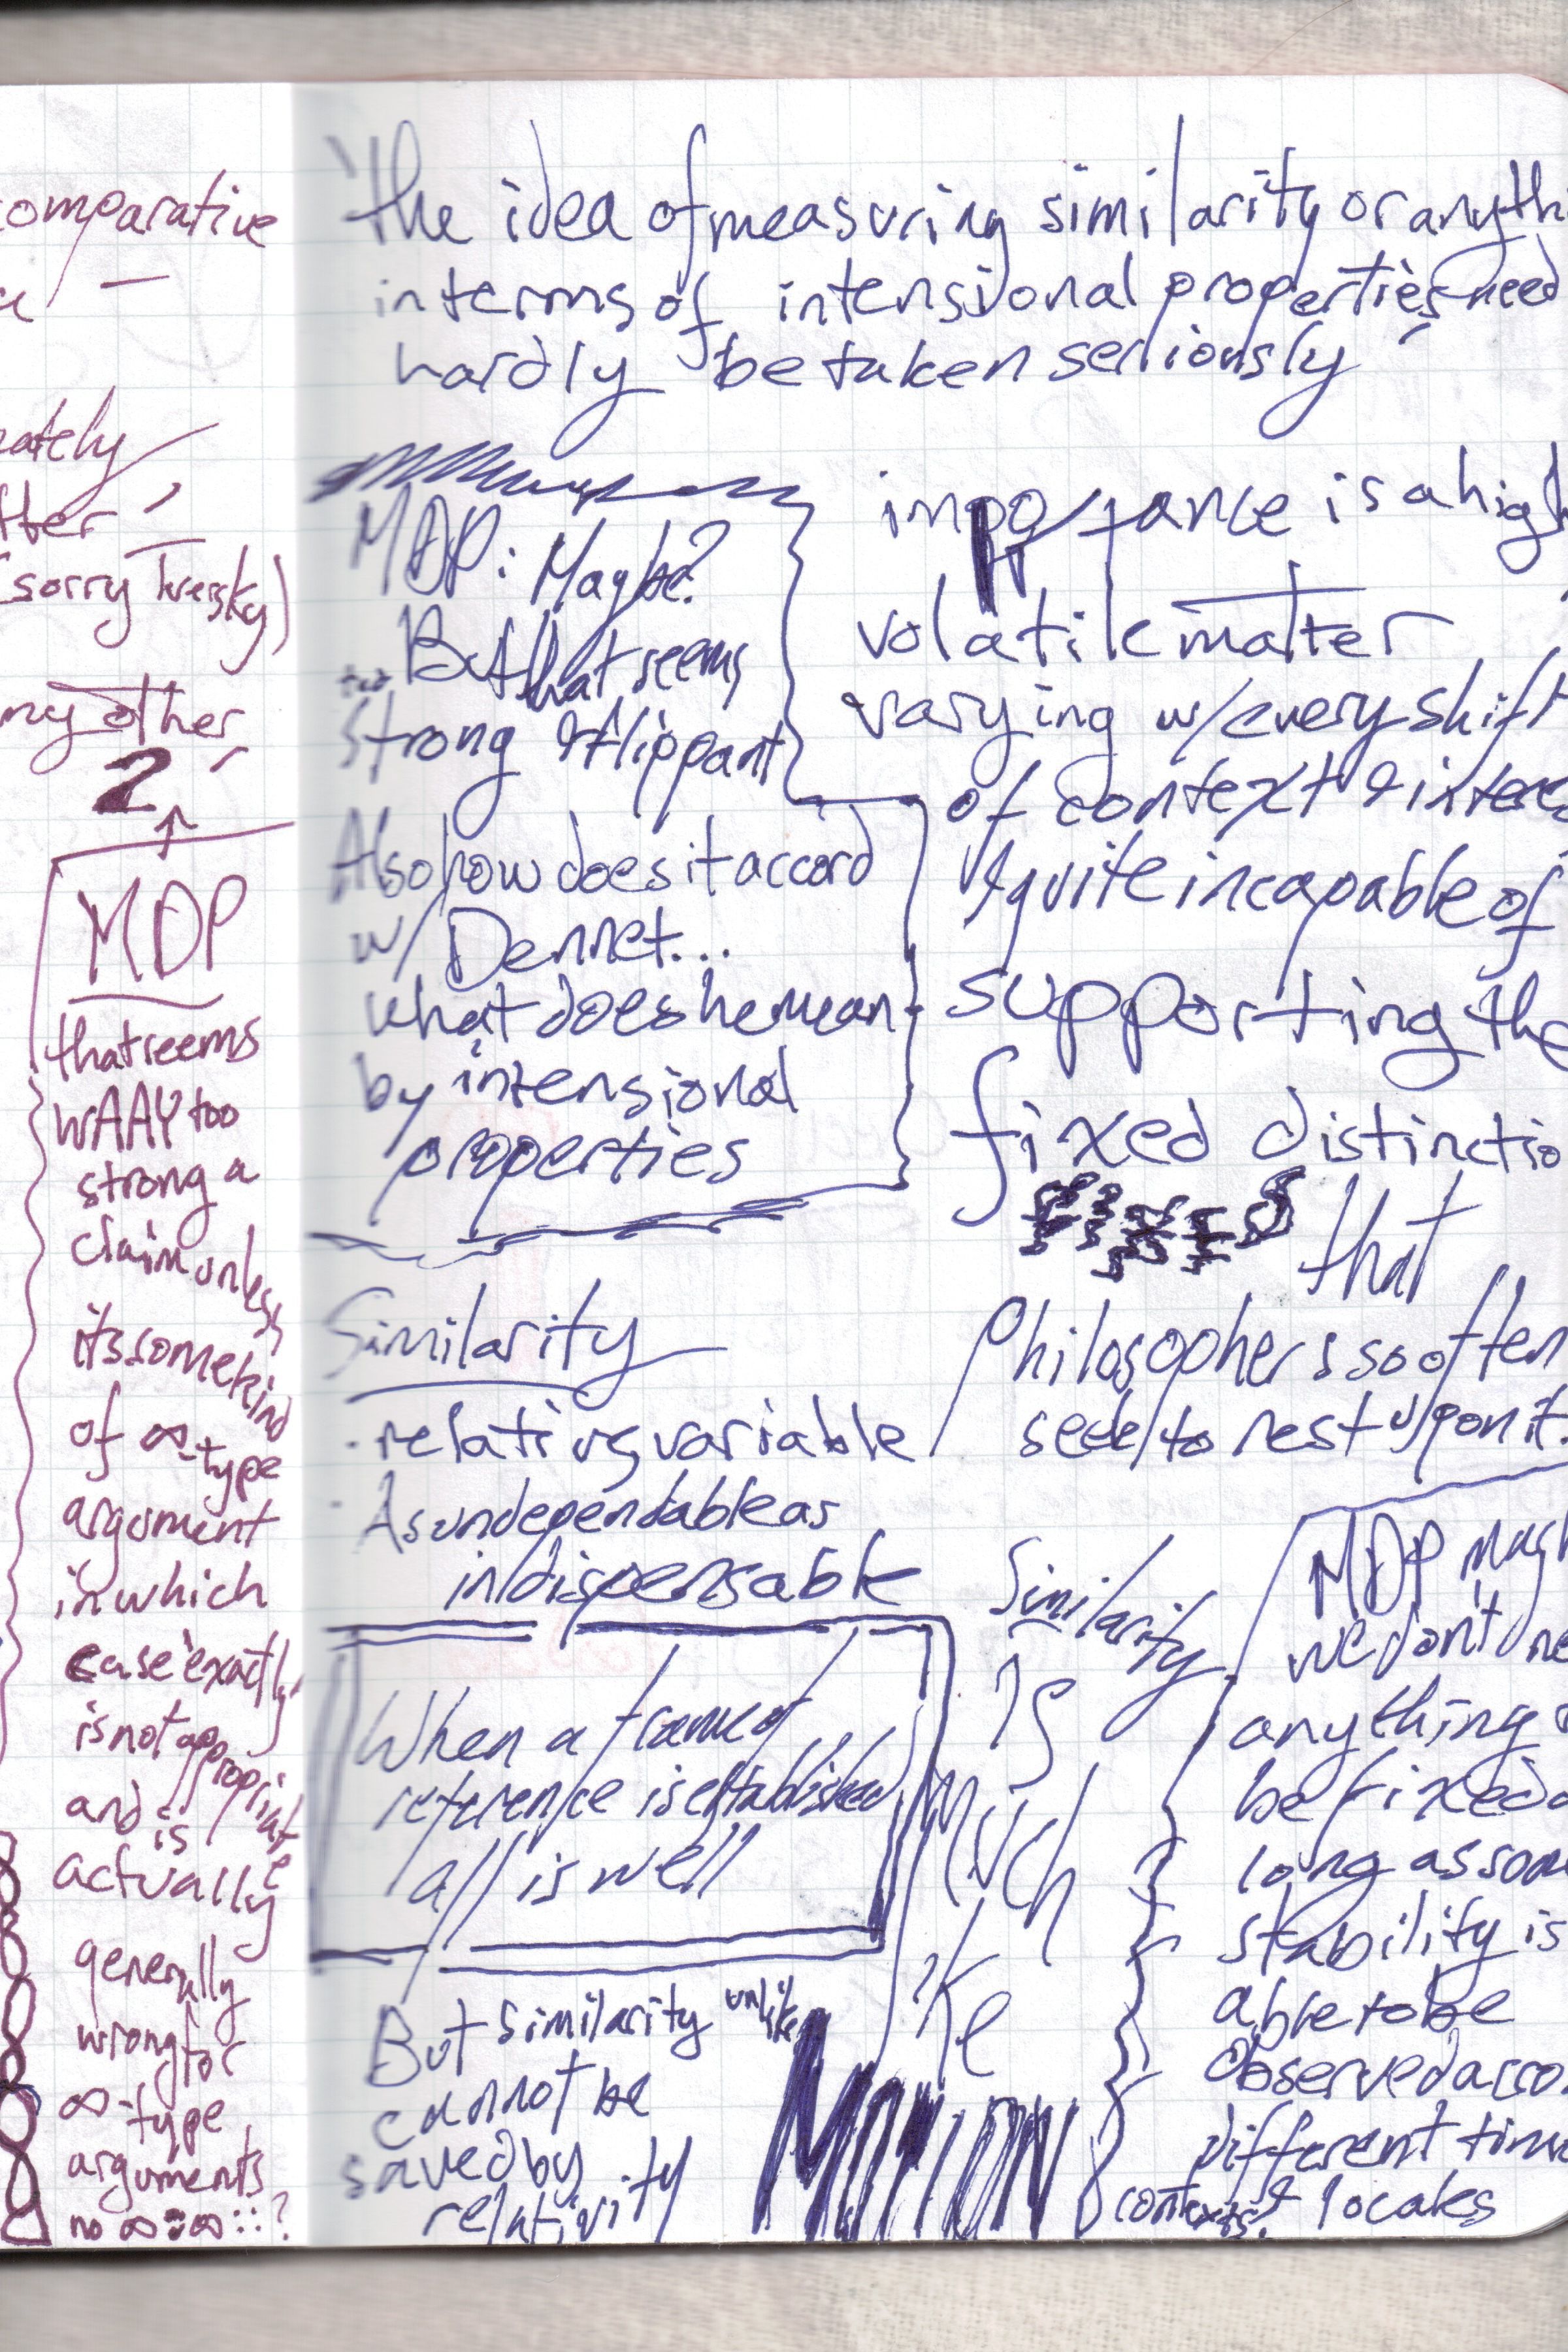 comparative
ately
tter
(sorry Tversky)
my other
2
MDP
that seems
WAAY too
strong a
claim unless
its some kind
of ∞-type
argument
in which
case 'exactly'
is not appropriate
and is
actually
generally
wrong for
∞-type
arguments
no ∞ :: ∞ :: ?
the idea of measuring similarity or anyth
in terms of intensional properties need
hardly be taken seriously
MDP: Maybe?
But that seems
too
strong & flippant
Also how does it accord
w/ Dennet...
what does he mean
by intensional
properties
Similarity
· relative, variable
· As undependable as
indispensable
When a frame of
reference is established
all is well
But similarity unlike
cannot be
saved by
relativity
importance is a high
volatile matter
varying w/ every shift
of context & intere
& quite incapable of
supporting the
fixed distinctio
that
Philosophers so often
seek to rest upon it.
Similarity
is
Much
like
MOTION
MDP may
we dont ne
anything
be fixed a
long as som
stability is
able to be
Observed acro
different time
contexts & locales